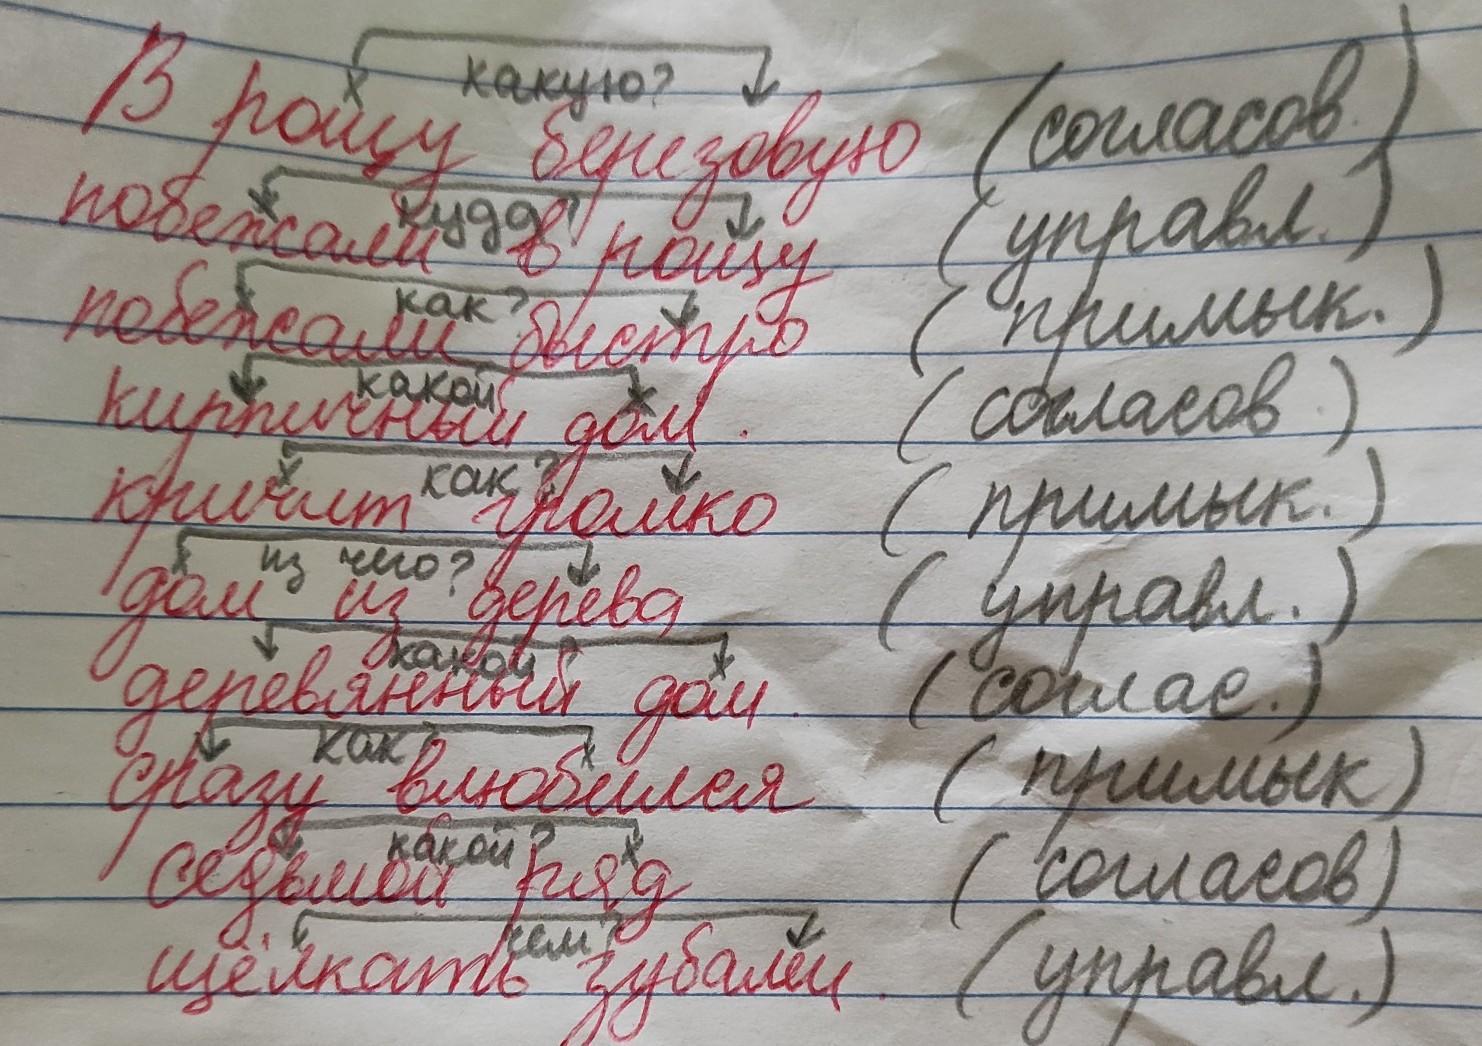 какую?
В рощу берёзовую (согласов.)
куда?
побежали в рощу (управл.)
как?
побежали быстро (примык.)
какой
кирпичный дом. (согласов.)
как?
кричит громко (примык.)
из чего?
дом из дерева (управл.)
какой?
деревянный дом. (соглас.)
как?
сразу влюбился (примык)
какой?
седьмой ряд (согласов)
чем?
щёлкать зубами. (управл.)